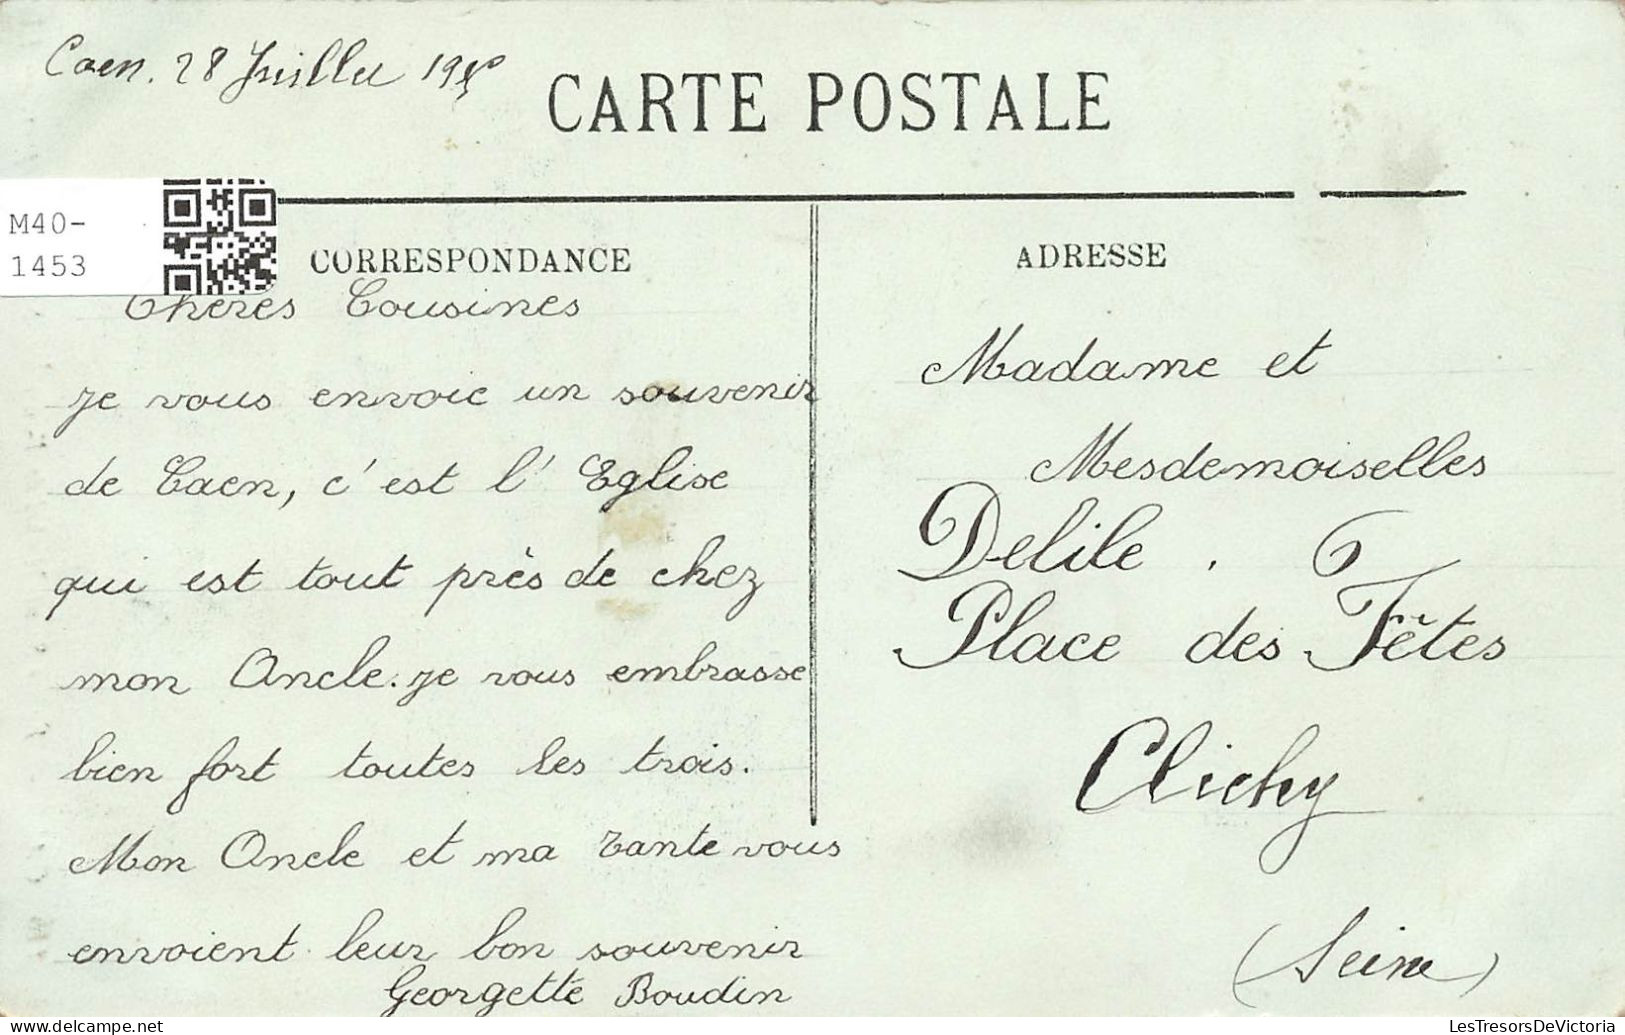 Caen. 28 Juillet
CARTE POSTALE
M40-
1453
CORRESPONDANCE
Chères Cousines
je vous envoie un souvenir
de Caen, c'est l'Eglise
qui est tout près de chez
mon Oncle. je vous embrasse
bien fort toutes les trois.
Mon Oncle et ma tante vous
envoient leur bon souvenir
Georgette Boudin
ADRESSE
Madame et
Mesdemoiselles
Delile. 6
Place des Fêtes
Clichy
(Seine)
LesTresorsDeVictoria